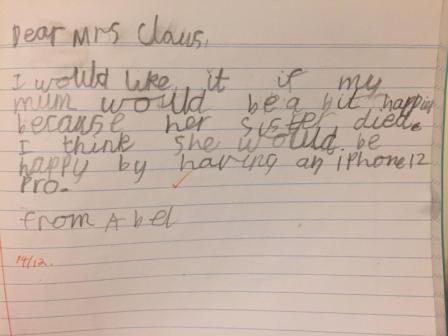 Dear Mrs Claus,
I would like it if my
mum would be a bit happier
because her sister died.
I think she would be
happy by having an iPhone12
Pro.
from Abel
14/12.